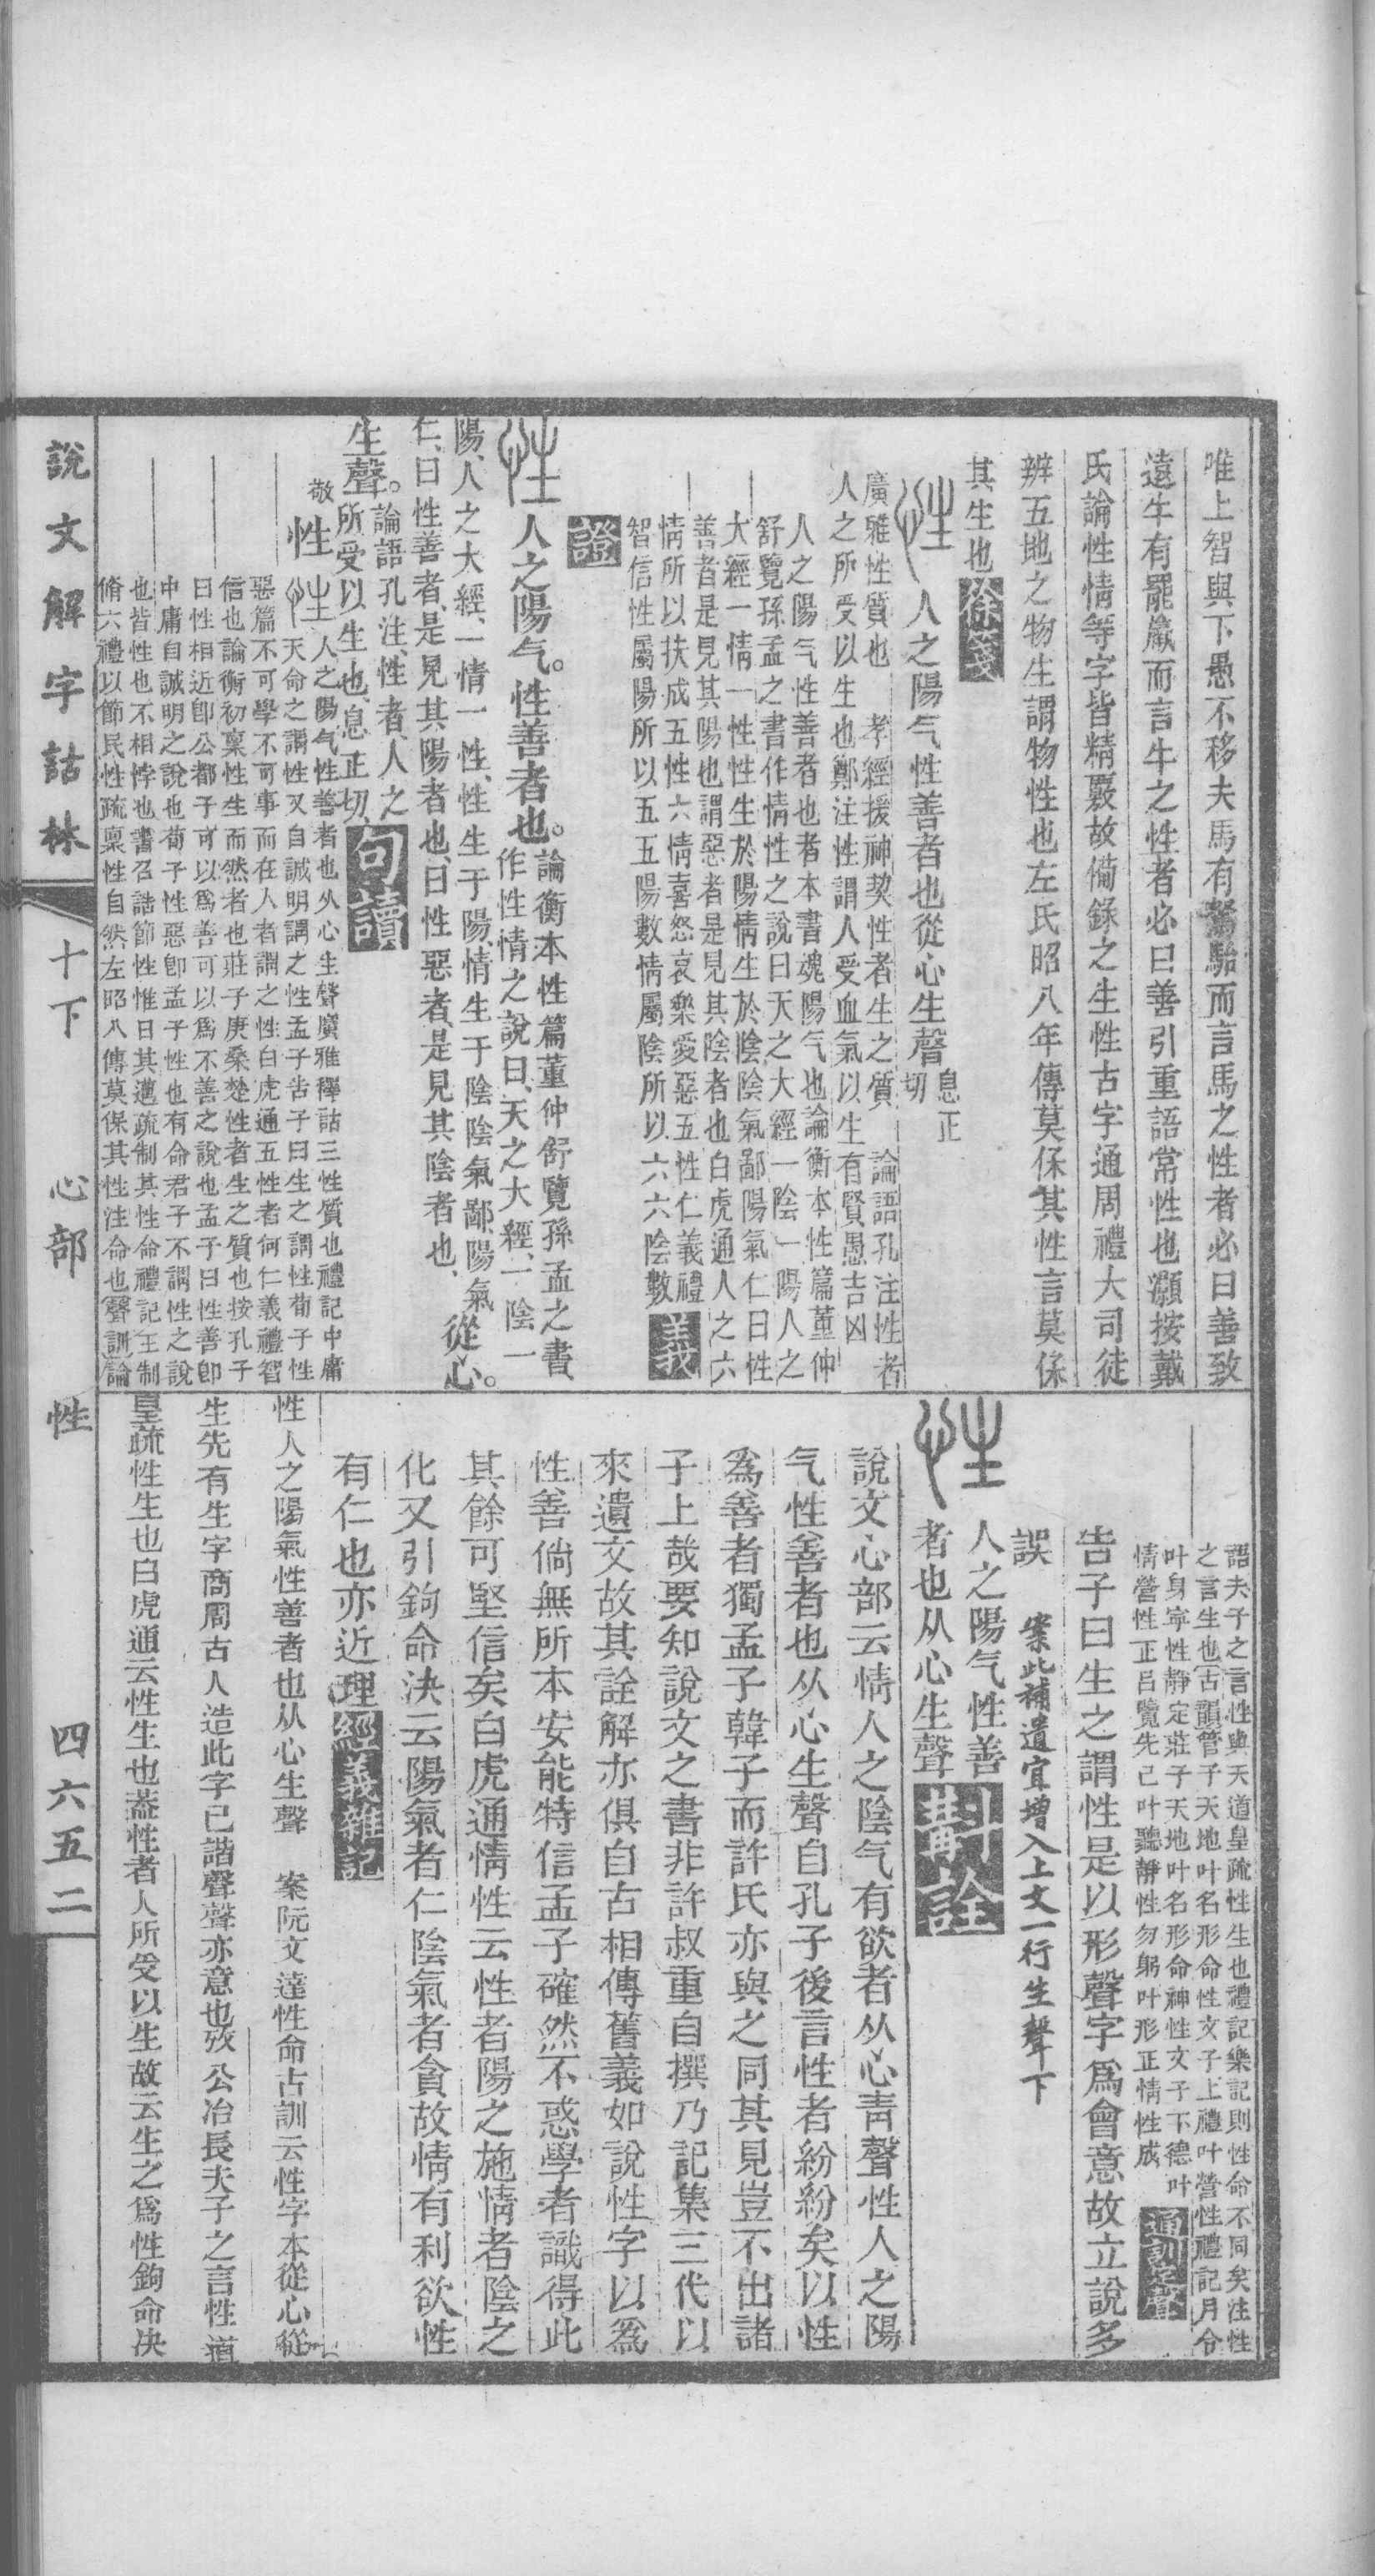 唯上智與下愚不移夫馬有駑駘而言馬之性者必曰善致
遠牛有羆羸而言牛之性者必曰善引重語常性也灝按戴
氏論性情等字皆精覈故僃錄之生性古字通周禮大司徒
辨五地之物生謂物性也左氏昭八年傳莫保其性言莫保
其生也徐箋
性 人之陽气性善者也從心生聲息正切
廣雅性質也 孝經援神契性者生之質 論語孔注性者
人之所受以生也鄭注性謂人受血氣以生有賢愚吉凶
人之陽气性善者也者本書魂陽气也論衡本性篇董仲
舒覽孫孟之書作情性之說曰天之大經一陰一陽人之
大經一情一性性生於陽情生於陰陰氣鄙陽氣仁曰性
善者是見其陽也謂惡者是見其陰者也白虎通人之六
情所以扶成五性六情喜怒哀樂愛惡五性仁義禮
智信性屬陽所以五五陽數情屬陰所以六六陰數義
證
性 人之陽气。性善者也。論衡本性篇董仲舒覽孫孟之書
作性情之說曰、天之大經、一陰一
陽、人之大經、一情一性、性生于陽、情生于陰、陰氣鄙、陽氣
仁、曰性善者、是見其陽者也、曰性惡者、是見其陰者也、從心。
生聲。論語孔注、性者、人之
所受以生也、息正切、句讀
敬 性 性 人之陽气性善者也从心生聲廣雅釋詁三性質也禮記中庸
天命之謂性又自誠明謂之性孟子告子曰生之謂性荀子性
惡篇不可學不可事而在人者謂之性白虎通五性者何仁義禮智
信也論衡初稟性生而然者也莊子庚桑楚性者生之質也按孔子
曰性相近卽公都子可以爲善可以爲不善之說也孟子曰性善卽
中庸自誠明之說也荀子性惡卽孟子性也有命君子不謂性之說
也皆性也不相悖也書召誥節性惟日其邁疏制其性命禮記王制
脩六禮以節民性疏稟性自然左昭八傳莫保其性注命也聲訓論
語夫子之言性與天道皇疏性生也禮記樂記則性命不同矣注性
之言生也古韻管子天地叶名形命性文子上禮叶營性禮記月令
叶身寧性靜定莊子天地叶名形命神性文子下德叶
情營性正呂覽先己叶聽靜性勿躬叶形正情性成通訓定聲
告子曰生之謂性是以形聲字爲會意故立說多
誤 案此補遺宜增入上文一行生聲下
性 人之陽气性善
者也从心生聲斠詮
說文心部云情人之陰气有欲者从心靑聲性人之陽
气性善者也从心生聲自孔子後言性者紛紛矣以性
爲善者獨孟子韓子而許氏亦與之同其見豈不出諸
子上哉要知說文之書非許叔重自撰乃記集三代以
來遺文故其詮解亦俱自古相傳舊義如說性字以爲
性善倘無所本安能特信孟子確然不惑學者識得此
其餘可堅信矣白虎通情性云性者陽之施情者陰之
化又引鉤命決云陽氣者仁陰氣者貪故情有利欲性
有仁也亦近理經義雜記
性人之陽氣性善者也从心生聲 案阮文達性命古訓云性字本從心從
生先有生字商周古人造此字已諧聲聲亦意也攷公冶長夫子之言性道
皇疏性生也白虎通云性生也葢性者人所受以生故云生之爲性鉤命決
說文解字詁林 十下 心部 性 四六五二